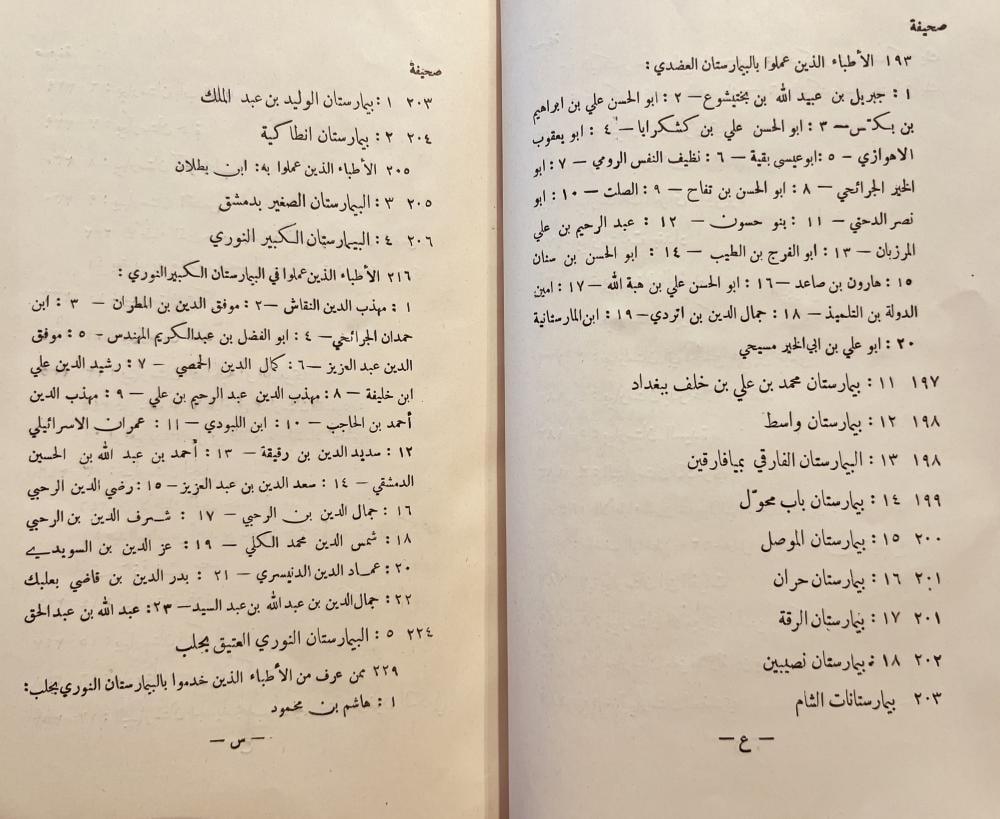 صحيفة
١٩٣ الأطباء الذين عملوا بالبيمارستان العضدي :
١ : جبريل بن عبيد الله بن بختيشوع — ٢ : ابو الحسن علي بن ابراهيم
بن بكتس — ٣ : ابو الحسن علي بن كشكرايا — ٤ : ابو يعقوب
الاهوازي — ٥ : ابو عيسى بقية — ٦ : نظيف النفس الرومي — ٧ : ابو
الخير الجرائحي — ٨ : ابو الحسن بن تفاح — ٩ : الصلت — ١٠ : ابو
نصر الدحني — ١١ : بنو حسون — ١٢ : عبد الرحيم بن علي
المرزبان — ١٣ : ابو الفرج بن الطيب — ١٤ : ابو الحسن بن سنان
١٥ : هارون بن صاعد — ١٦ : ابو الحسن علي بن هبة الله — ١٧ : امين
الدولة بن التلميذ — ١٨ : جمال الدين بن اتردي — ١٩ : ابن المارستانية
٢٠ : ابو علي بن ابي الخير مسيحي
١٩٧ ١١ : بيمارستان محمد بن علي بن خلف ببغداد
١٩٨ ١٢ : بيمارستان واسط
١٩٨ ١٣ : البيمارستان الفارقي بميافارقين
١٩٩ ١٤ : بيمارستان باب محوّل
٢٠٠ ١٥ : بيمارستان الموصل
٢٠١ ١٦ : بيمارستان حران
٢٠١ ١٧ : بيمارستان الرقة
٢٠٢ ١٨ : بيمارستان نصيبين
٢٠٣ بيمارستانات الشام
— ع —
صحيفة
٢٠٣ ١ : بيمارستان الوليد بن عبد الملك
٢٠٤ ٢ : بيمارستان انطاكية
٢٠٥ الأطباء الذين عملوا به : ابن بطلان
٢٠٥ ٣ : البيمارستان الصغير بدمشق
٢٠٦ ٤ : البيمارستان الكبير النوري
٢١٦ الأطباء الذين عملوا في البيمارستان الكبير النوري :
١ : مهذب الدين النقاش — ٢ : موفق الدين بن المطران — ٣ : ابن
حمدان الجرائحي — ٤ : ابو الفضل بن عبد الكريم المهندس — ٥ : موفق
الدين عبد العزيز — ٦ : كمال الدين الحمصي — ٧ : رشيد الدين علي
ابن خليفة — ٨ : مهذب الدين عبد الرحيم بن علي — ٩ : مهذب الدين
أحمد بن الحاجب — ١٠ : ابن اللبودي — ١١ : عمران الاسرائيلي
١٢ : سديد الدين بن رقيقة — ١٣ : أحمد بن عبد الله بن الحسين
الدمشقي — ١٤ : سعد الدين بن عبد العزيز — ١٥ : رضي الدين الرحبي
١٦ : جمال الدين بن الرحبي — ١٧ : شرف الدين بن الرحبي
١٨ : شمس الدين محمد الكلي — ١٩ : عز الدين بن السويدي
٢٠ : عماد الدين الدنيسري — ٢١ : بدر الدين بن قاضي بعلبك
٢٢ : جمال الدين بن عبد الله بن عبد السيد — ٢٣ : عبد الله بن عبد الحق
٢٢٤ ٥ : البيمارستان النوري العتيق بحلب
٢٢٩ ممن عرف من الأطباء الذين خدموا بالبيمارستان النوري بحلب :
١ : هاشم بن محمود
— س —